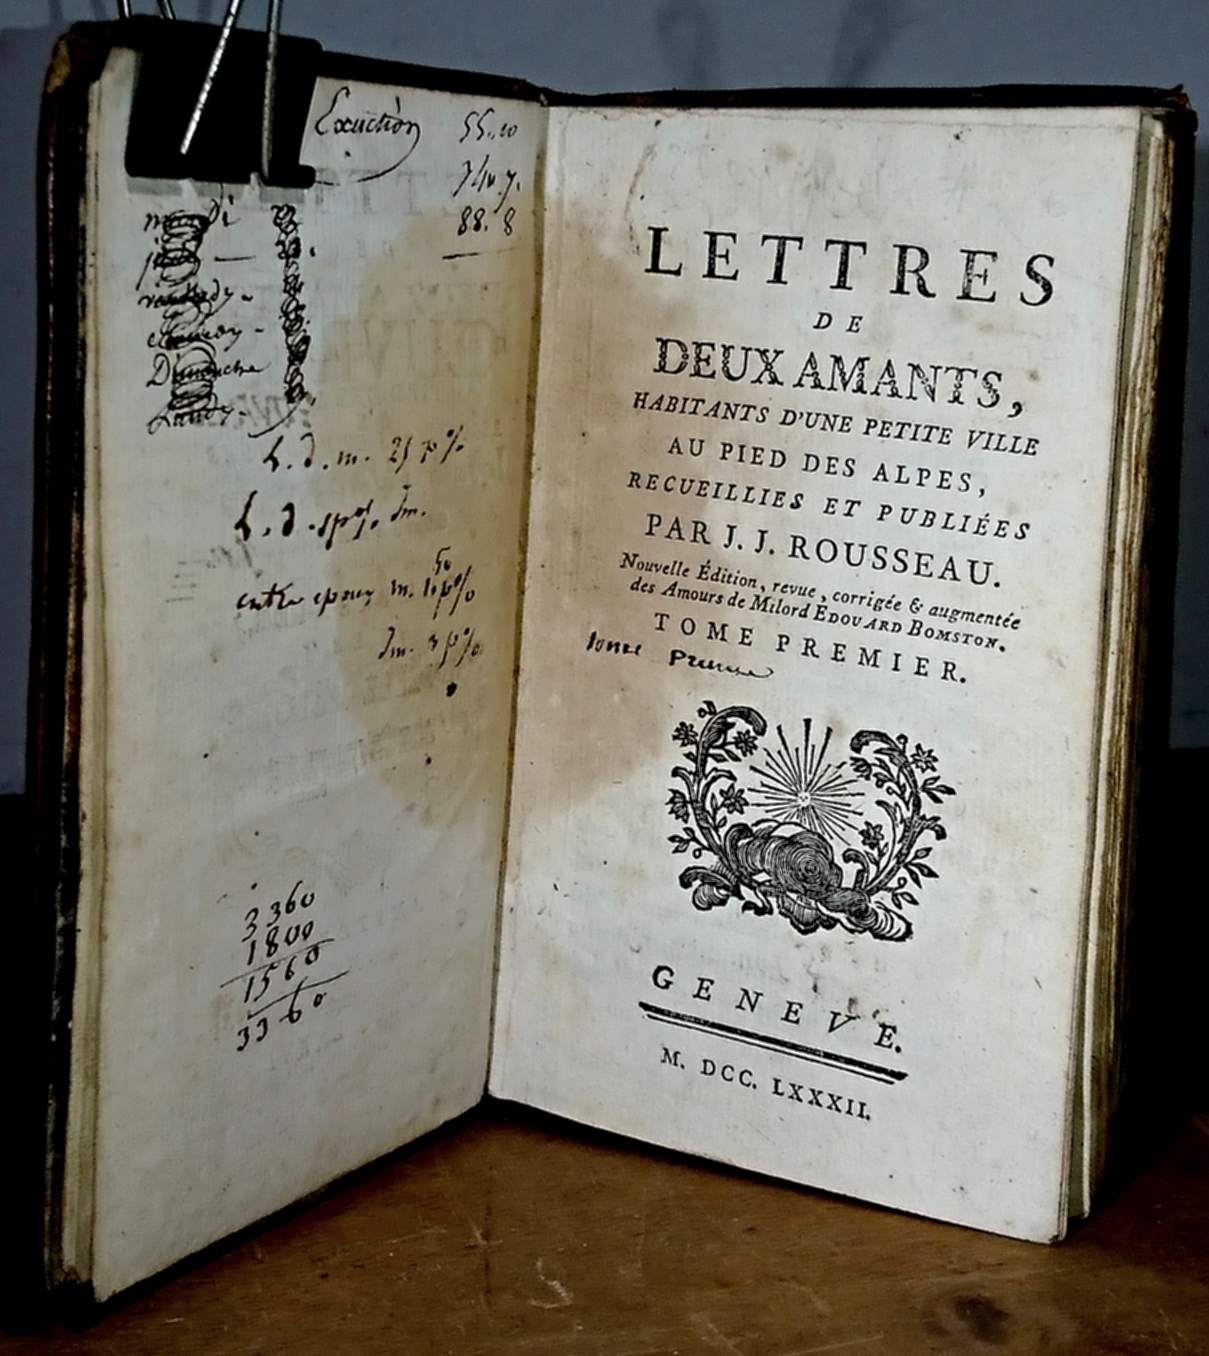 Exuction
55.. 10
88. 8
Dimanche
Lundy.
h. d. m. 25 p %
entre epoux m. 10 p%
3360
1800
1560
3360
LETTRES
DE
DEUX AMANTS,
HABITANTS D'UNE PETITE VILLE
AU PIED DES ALPES,
RECUEILLIES ET PUBLIÉES
PAR J. J. ROUSSEAU.
Nouvelle Édition, revue, corrigée & augmentée
des Amours de Milord EDOUARD BOMSTON.
TOME PREMIER.
tome Premie
GENEVE.
M. DCC. LXXXII.